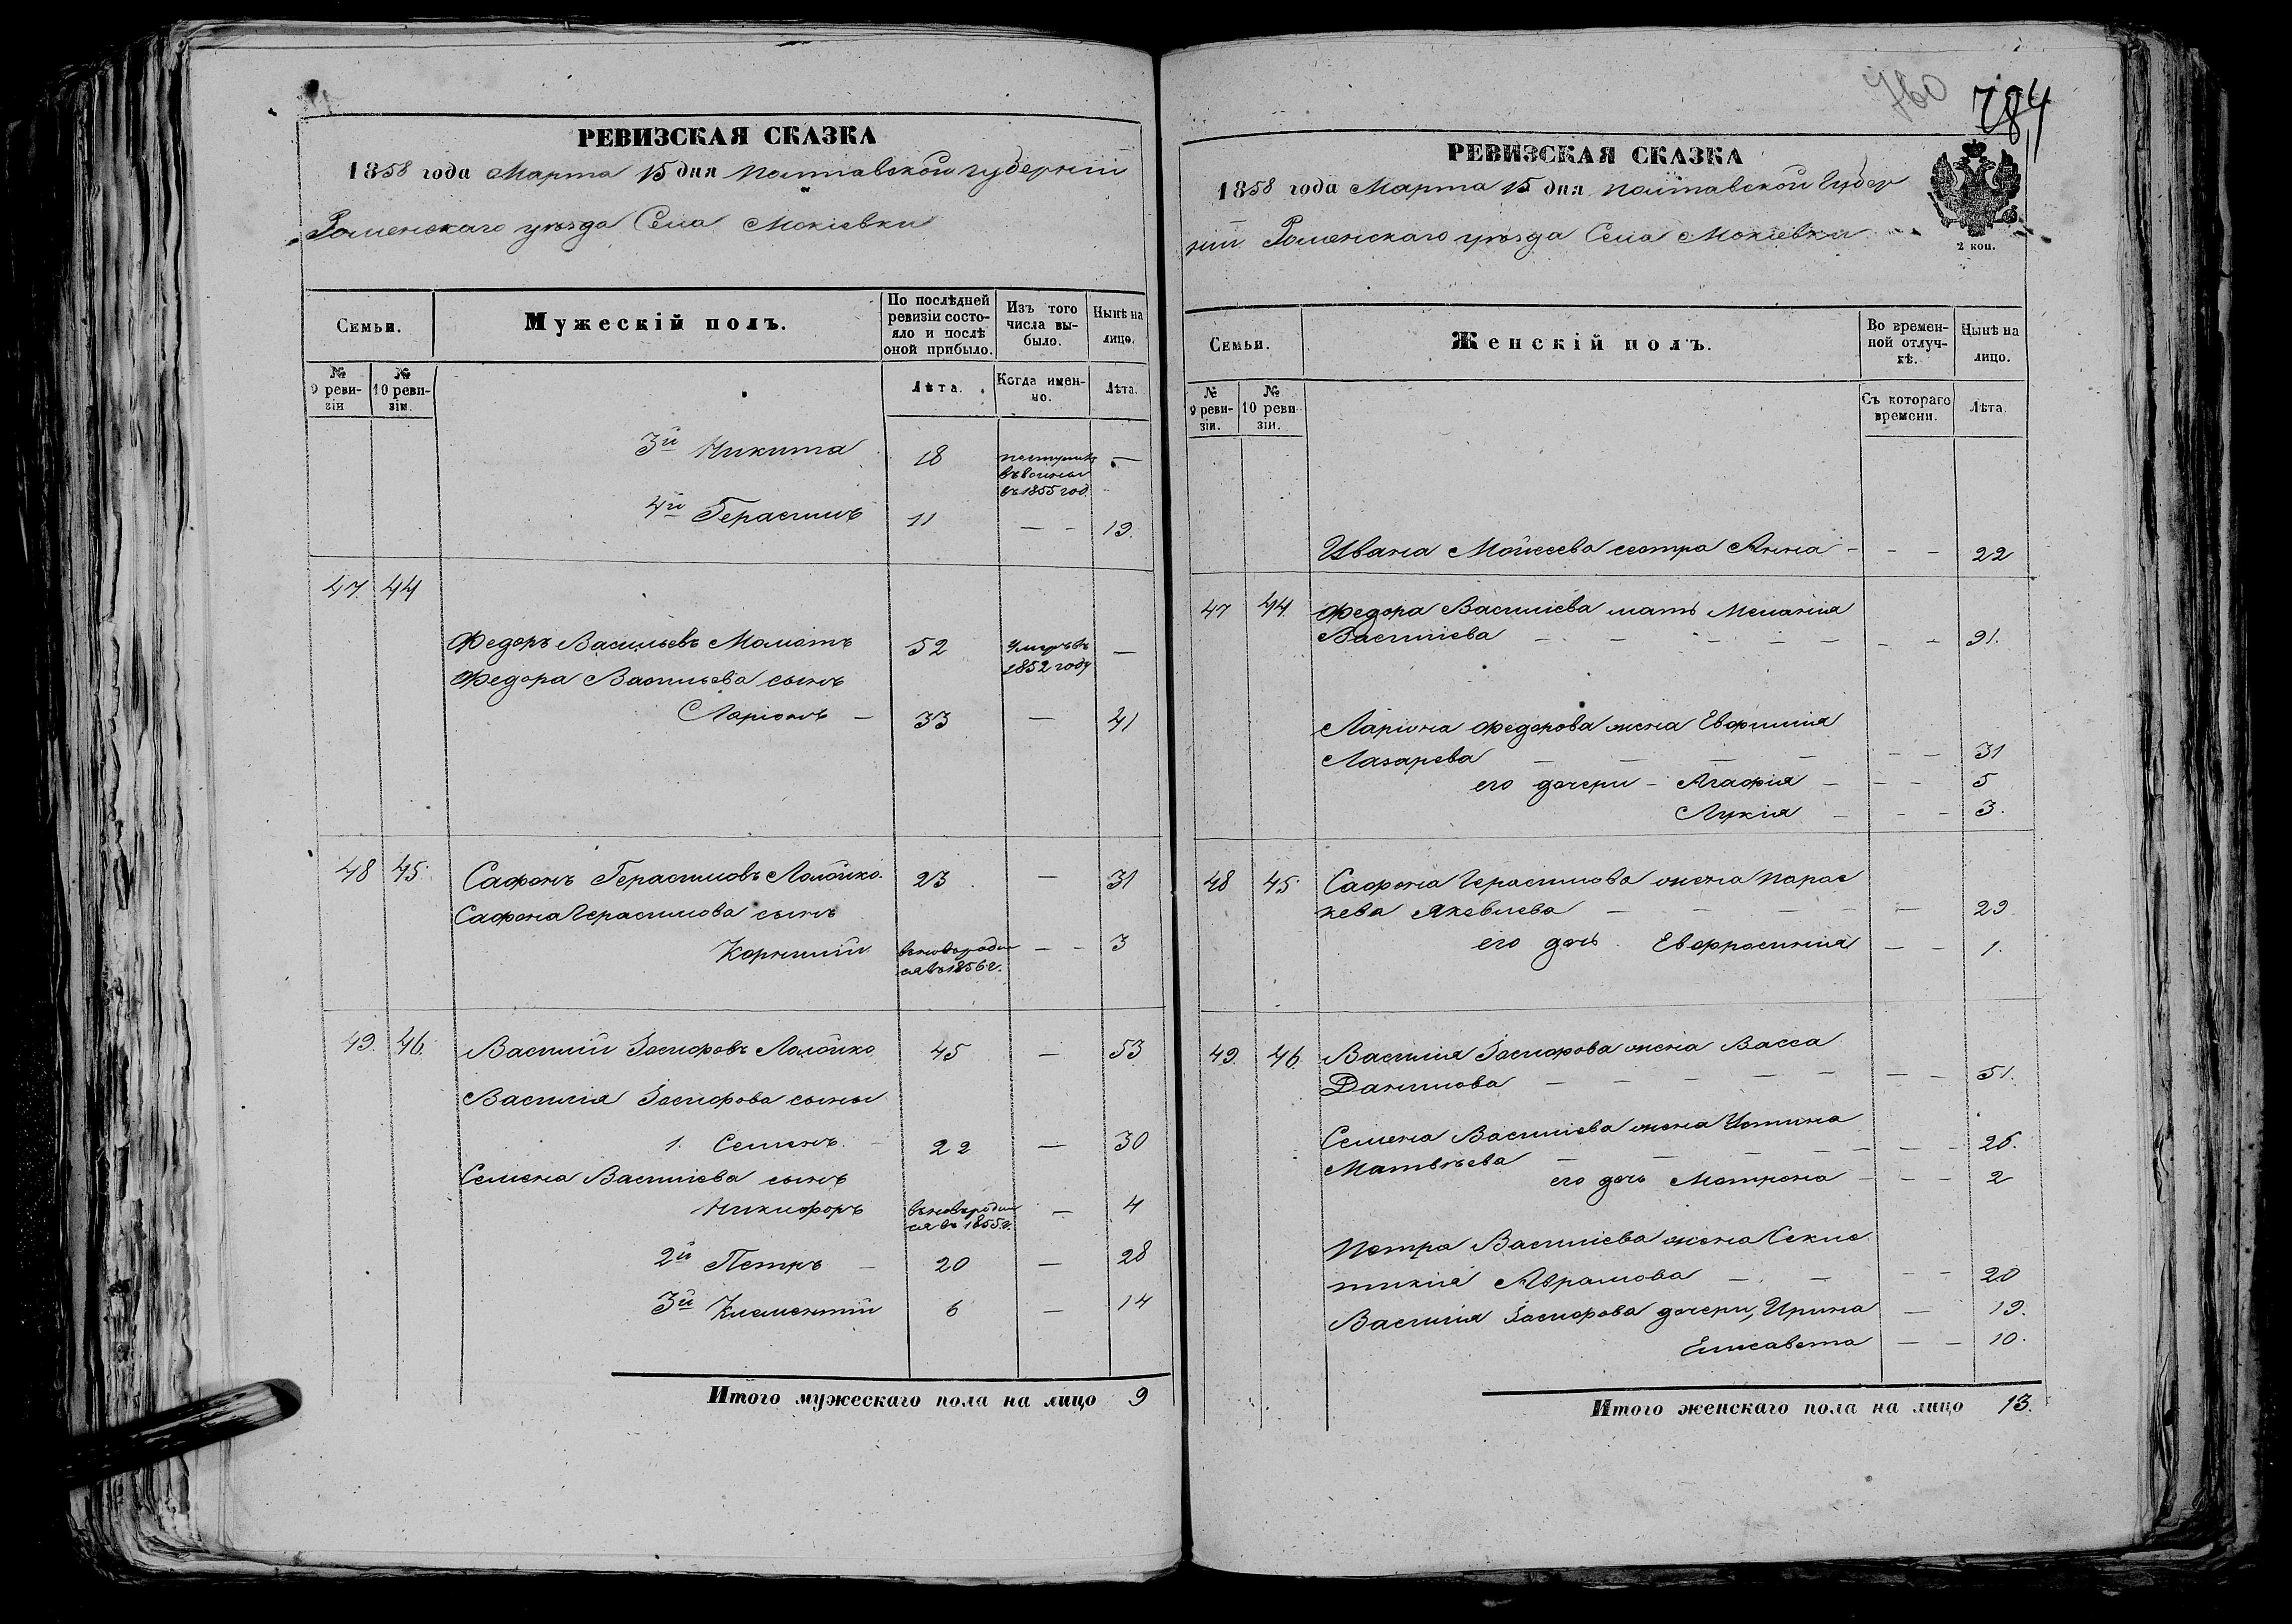 РЕВИЗСКАЯ СКАЗКА
1858 года Марта 15 дня Полтавской губерніи
Роменскаго уѣзда Села Мокіевки
Семьи.
Мужескій полъ.
По послѣдней ревизіи состояло и послѣ оной прибыло.
Изъ того числа выбыло.
Нынѣ на лицо.
№ 9 ревизіи
№ 10 ревизіи.
Лѣта.
Когда именно.
Лѣта.
3й Никита 18 поступилъ —
въ воины
въ 1855 год.
4й Герасимъ 11 — - 19.
47. 44
Федоръ Васильевъ Мамотъ 52 Умеръ въ —
1852 году
Федора Васильева сынъ
Ларіонъ — 33 — 41
48 45. Сафонъ Герасимовъ Лолойко. 23 — 31
Сафона Герасимова сынъ
Корнилій вновь родил — - 3
ся въ 1856 г.
49. 46. Василій Іосифовъ Лолойко 45 — 53
Василія Іосифова сыны
1. Семенъ. 22 — 30
Семена Василіева сынъ
Никифоръ вновь родил — 4
ся въ 1855 г.
2й Петръ — 20 — 28
3й Климентій 6 — 14
Итого мужескаго пола на лицо 9
760
784
РЕВИЗСКАЯ СКАЗКА
1858 года Марта 15 дня Полтавской Губер
ніи Роменскаго уѣзда Села Мокіевки
2 коп.
Семьи.
Женскій полъ.
Во временной отлучкѣ.
Нынѣ на лицо.
№ 9 ревизіи.
№ 10 ревизіи.
Съ котораго времени.
Лѣта.
Ивана Мойсеева сестра Анна - - — 22
47 44. Федора Василіева мать Меланія
Василіева — — - — — - — 91.
Ларіона Федорова жена Евфимія
Лазарева — — — — — — 31
его дочери - Агафія — — - 5
Лукія — - — 3.
48 45. Сафона Герасимова жена Парас
кева Яковлева — - — - — 29
его дочь Евфросинія — — 1.
49. 46. Василія Іосифова жена Васса
Данилова — — — — — — — 51.
Семена Василіева жена Устина
Матвѣева — — — — — — 26.
его дочь Матрона — — - 2
Петра Василіева жена Секле
тикія Аврамова — — — - 20
Василія Іосифова дочери, Ирина — 19.
Елисавета — — 10.
Итого женскаго пола на лицо 13.